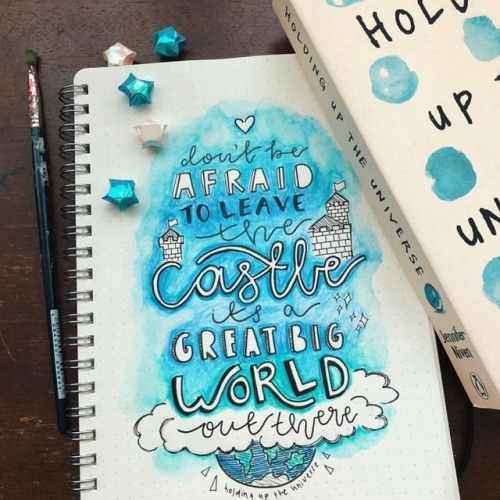 don't be
AFRAID
TO LEAVE
the
Castle
its a
GREAT BIG
WORLD
out there
holding up the universe
HOLDING UP THE UNIVERSE
Jennifer
Niven
HOLD
UP T
UN